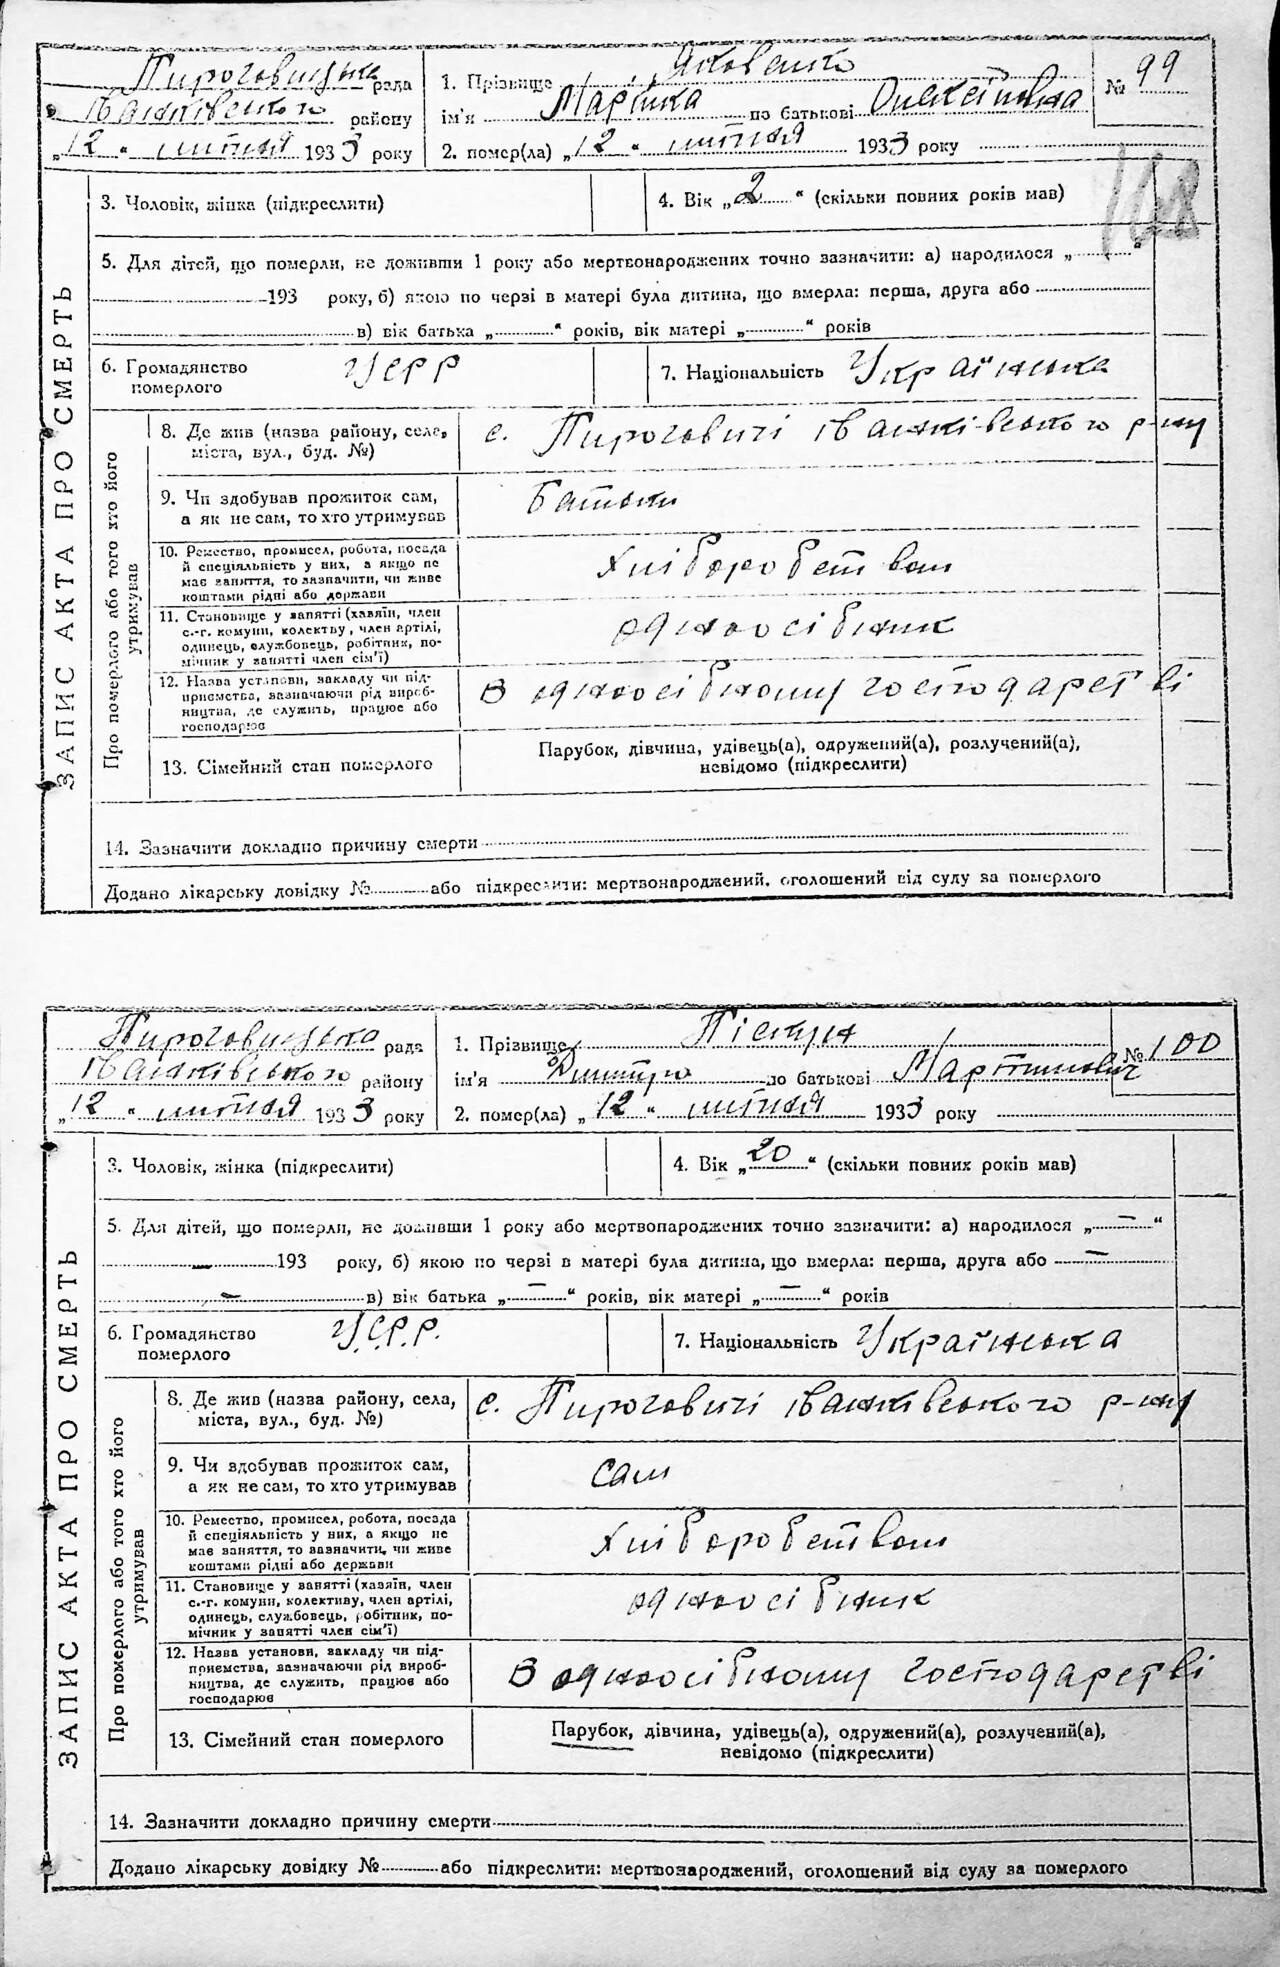 Пироговицька рада
Іванківського району
„12“ липня 1933 року
1. Прізвище Яковенко
ім'я Марійка по батькові Олексіївна
2. помер(ла) „12“ липня 1933 року
№ 99
168
ЗАПИС АКТА ПРО СМЕРТЬ
3. Чоловік, жінка (підкреслити)
4. Вік „2“ (скільки повних років мав)
5. Для дітей, що померли, не доживши 1 року або мертвонароджених точно зазначити: а) народилося „ “
193 року, б) якою по черзі в матері була дитина, що вмерла: перша, друга або
в) вік батька „ “ років, вік матері „ “ років
6. Громадянство
померлого
УСРР
7. Національність Українська
Про померлого або того хто його
утримував
8. Де жив (назва району, села,
міста, вул., буд. №)
с. Пироговичі Іванківського р-ну
9. Чи здобував прожиток сам,
а як не сам, то хто утримував
Батьки
10. Ремество, промисел, робота, посада
й спеціяльність у них, а якщо не
має заняття, то зазначити, чи живе
коштами рідні або держави
Хліборобством
11. Становище у занятті (хазяїн, член
с.-г. комуни, колективу, член артілі,
одинець, службовець, робітник, по-
мічник у занятті член сім'ї)
одноосібник
12. Назва установи, закладу чи під-
приємства, зазначаючи рід вироб-
ництва, де служить, працює або
господарює
В одноосібному господарстві
13. Сімейний стан померлого
Парубок, дівчина, удівець(а), одружений(а), розлучений(а),
невідомо (підкреслити)
14. Зазначити докладно причину смерти
Додано лікарську довідку № або підкреслити: мертвонароджений, оголошений від суду за померлого
Пироговицька рада
Іванківського району
„12“ липня 1933 року
1. Прізвище Піскун
ім'я Дмитро по батькові Мартинович
2. помер(ла) „12“ липня 1933 року
№ 100
ЗАПИС АКТА ПРО СМЕРТЬ
3. Чоловік, жінка (підкреслити)
4. Вік „20“ (скільки повних років мав)
5. Для дітей, що померли, не доживши 1 року або мертвонароджених точно зазначити: а) народилося „—“
— 193 року, б) якою по черзі в матері була дитина, що вмерла: перша, друга або —
— в) вік батька „—“ років, вік матері „—“ років
6. Громадянство
померлого
У.С.Р.Р.
7. Національність Українська
Про померлого або того хто його
утримував
8. Де жив (назва району, села,
міста, вул., буд. №)
с. Пироговичі Іванківського р-ну
9. Чи здобував прожиток сам,
а як не сам, то хто утримував
сам
10. Ремество, промисел, робота, посада
й спеціяльність у них, а якщо не
має заняття, то зазначити, чи живе
коштами рідні або держави
Хліборобством
11. Становище у занятті (хазяїн, член
с.-г. комуни, колективу, член артілі,
одинець, службовець, робітник, по-
мічник у занятті член сім'ї)
одноосібник
12. Назва установи, закладу чи під-
приємства, зазначаючи рід вироб-
ництва, де служить, працює або
господарює
В одноосібному господарстві
13. Сімейний стан померлого
Парубок, дівчина, удівець(а), одружений(а), розлучений(а),
невідомо (підкреслити)
14. Зазначити докладно причину смерти
Додано лікарську довідку № або підкреслити: мертвонароджений, оголошений від суду за померлого